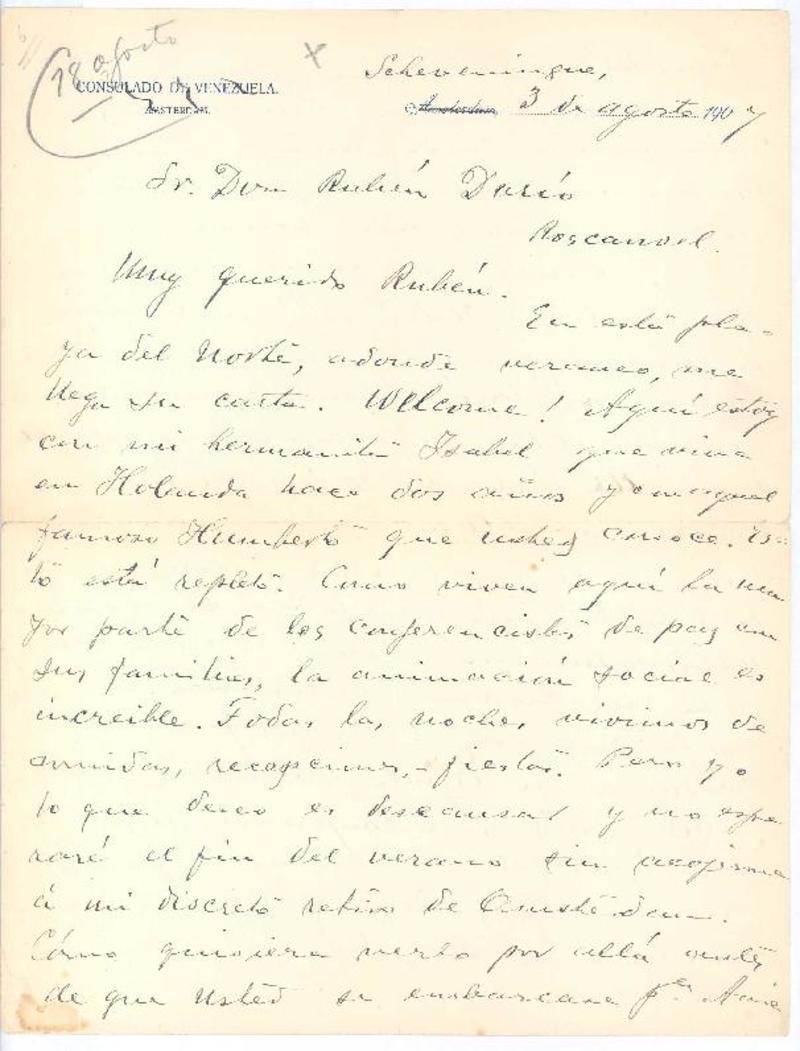 18 agosto
CONSULADO DE VENEZUELA.
AMSTERDAM.
Scheveningue,
Amsterdam, 3 de agosto 1907
Sr. Don Rubén Darío
Roscanvel.
Muy querido Rubén.
En esta pla-
ya del Norte, adonde veraneo, me
llega su carta. Welcome! Aquí estoy
con mi hermanita Isabel que vive
en Holanda hace dos años y con aquel
famoso Humberto que usted conoce. Es-
to está repleto. Como viven aquí la ma
yor parte de los conferencistas de paz con
sus familias, la animación social es
increible. Todas las noches vivimos de
comidas, recepciones, fiestas. Pero yo
lo que deseo es descansar y no espe
raré el fin del verano sin acojerme
á mi discreto retiro de Amsterdam.
Cómo quisiera verlo por allá antes
de que usted se embarcara pa Amé